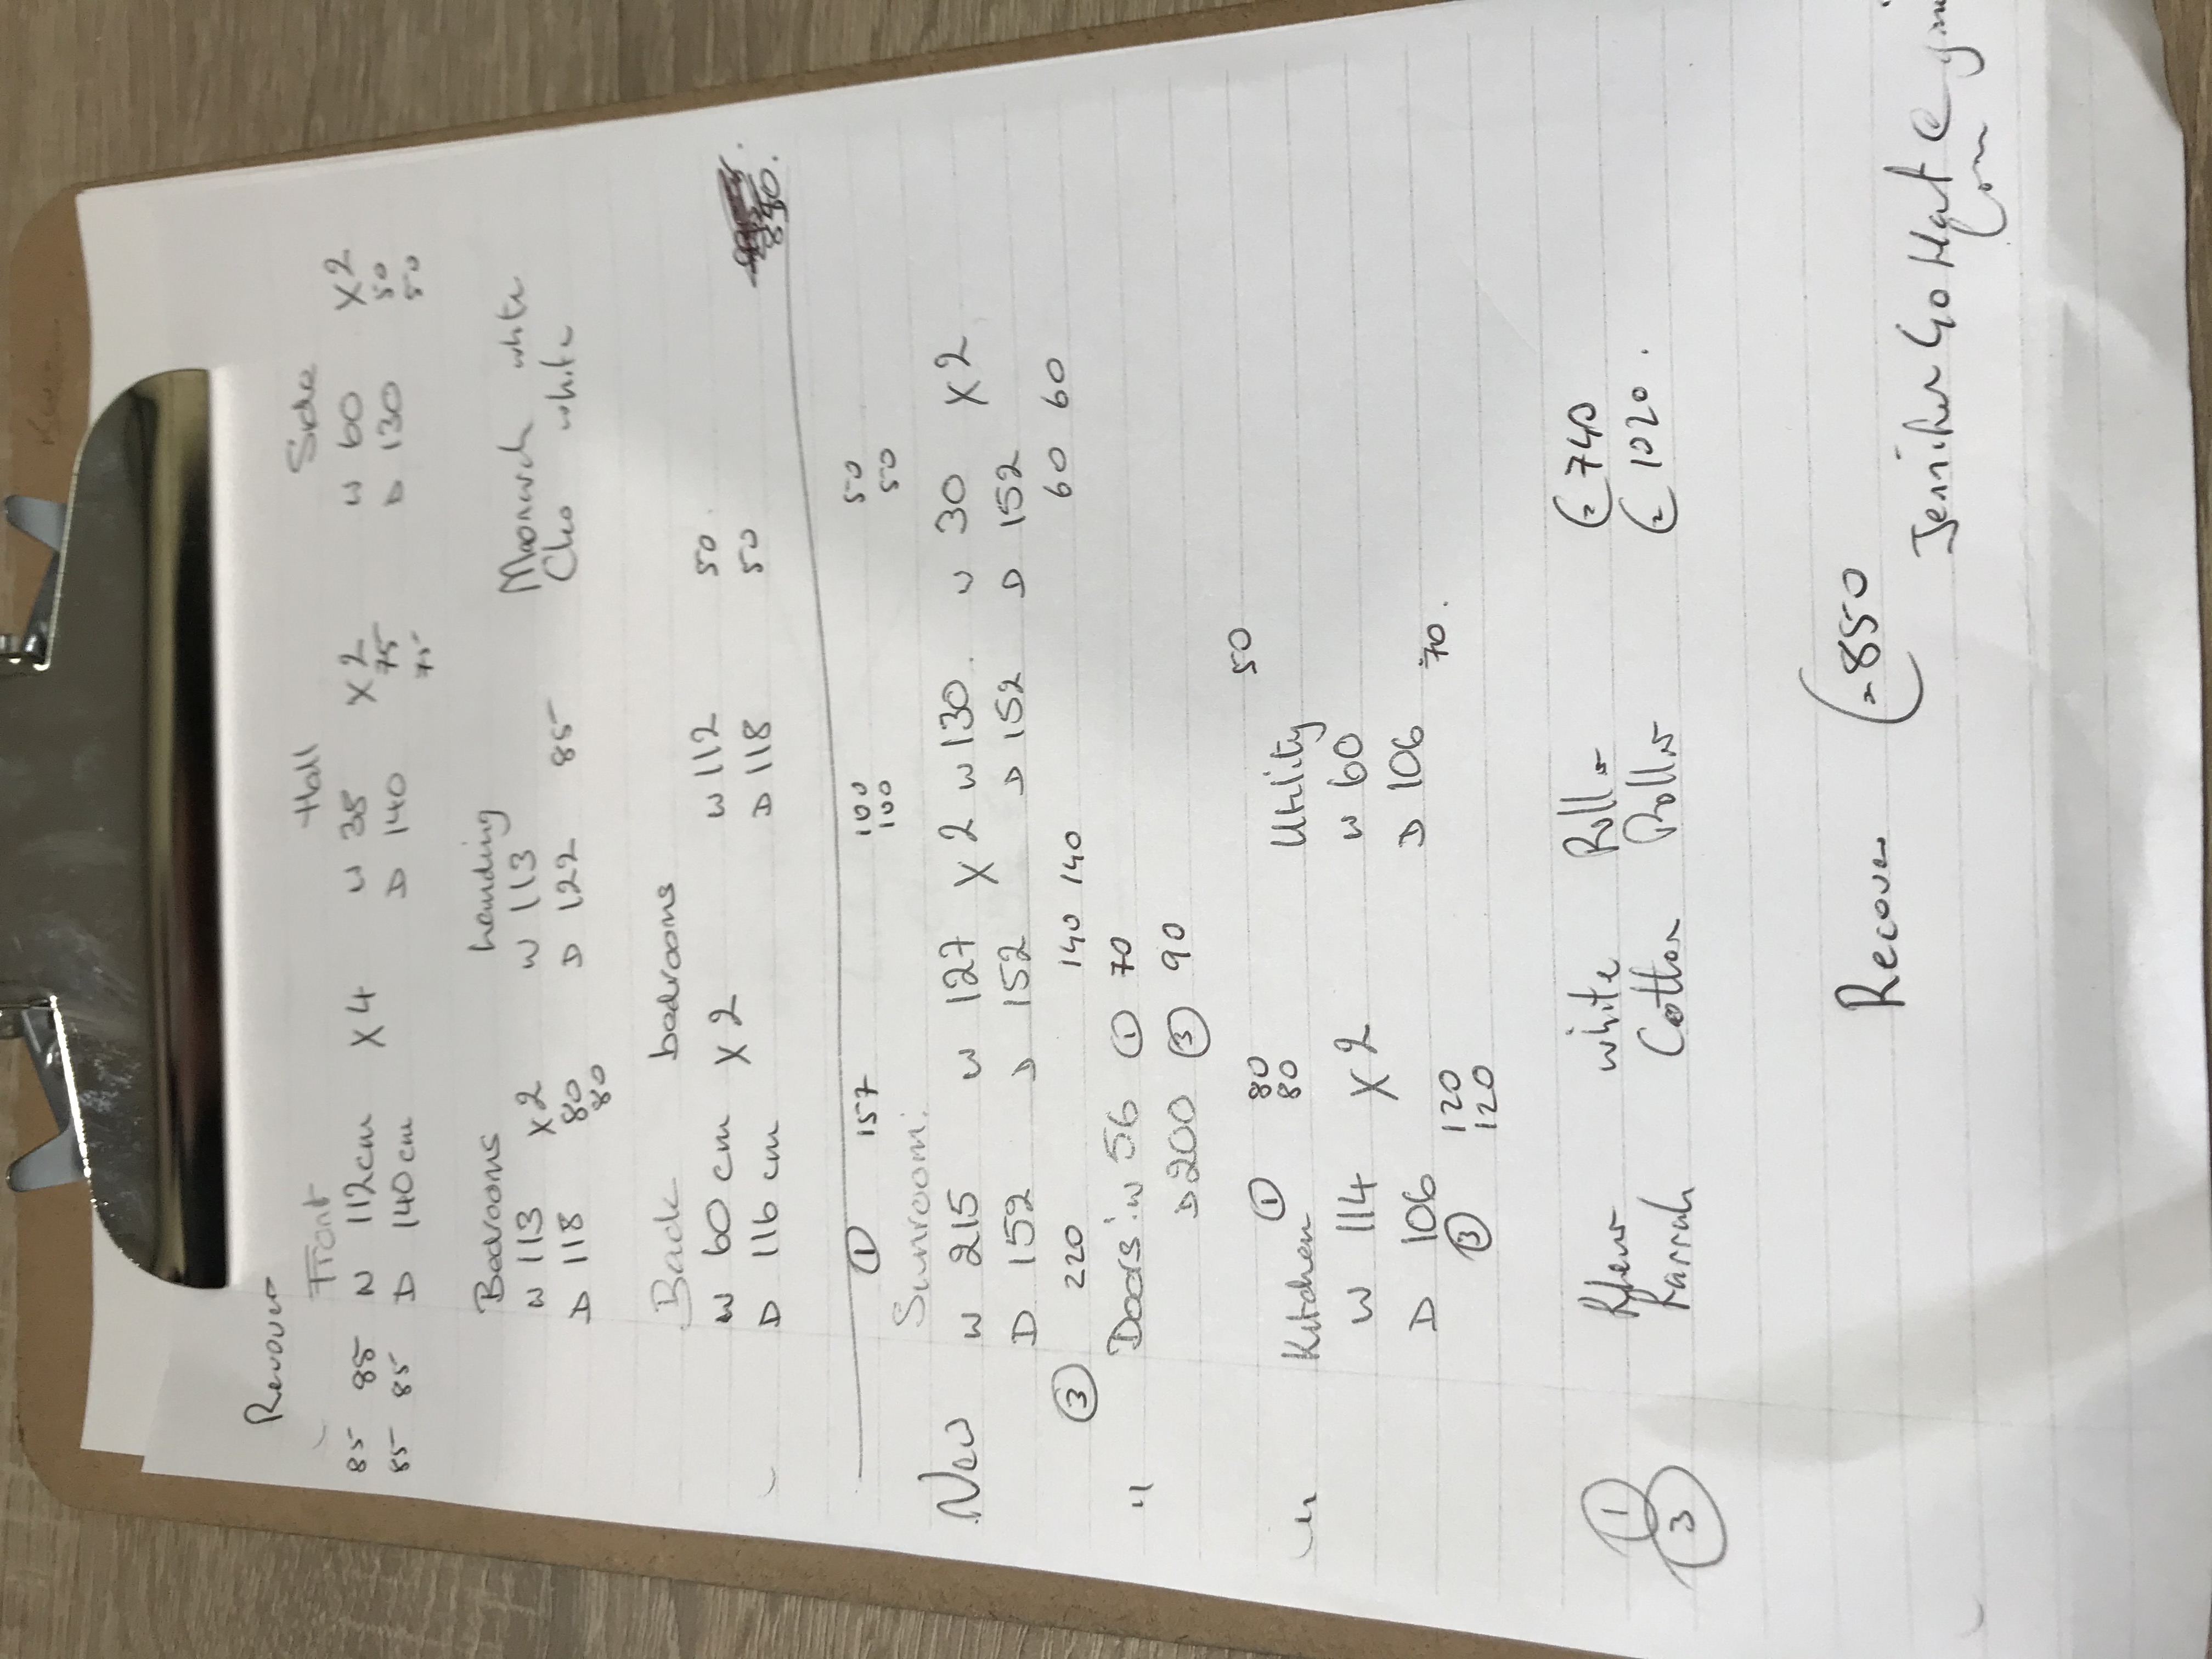 Recover
Front Hall Side
85 85 W 112cm X 4 W 38 X 2 W 60 X 2
85 85 D 140cm D 140 75 75 D 130 50 50
Bedrooms Landing
W 113 X 2 W 113 Monarch white
D 118 80 80 D 122 85 Cleo white
Back bedrooms
W 60 cm X 2 W 112 50
D 116 cm D 118 50
840.
① 157 100 100 50 50
Sunroom.
New W 215 W 127 X 2 W 130 W 30 X 2
D 152 D 152 D 152 D 152
③ 220 140 140 60 60
" Doors: W 56 ① 70
D 200 ③ 90
Kitchen ① 80 80 Utility 50
W 114 X 2 W 60
D 106 D 106
③ 120 120 70.
① white Rolls €740
③ Cotton Rolls €1020.
Recover €850